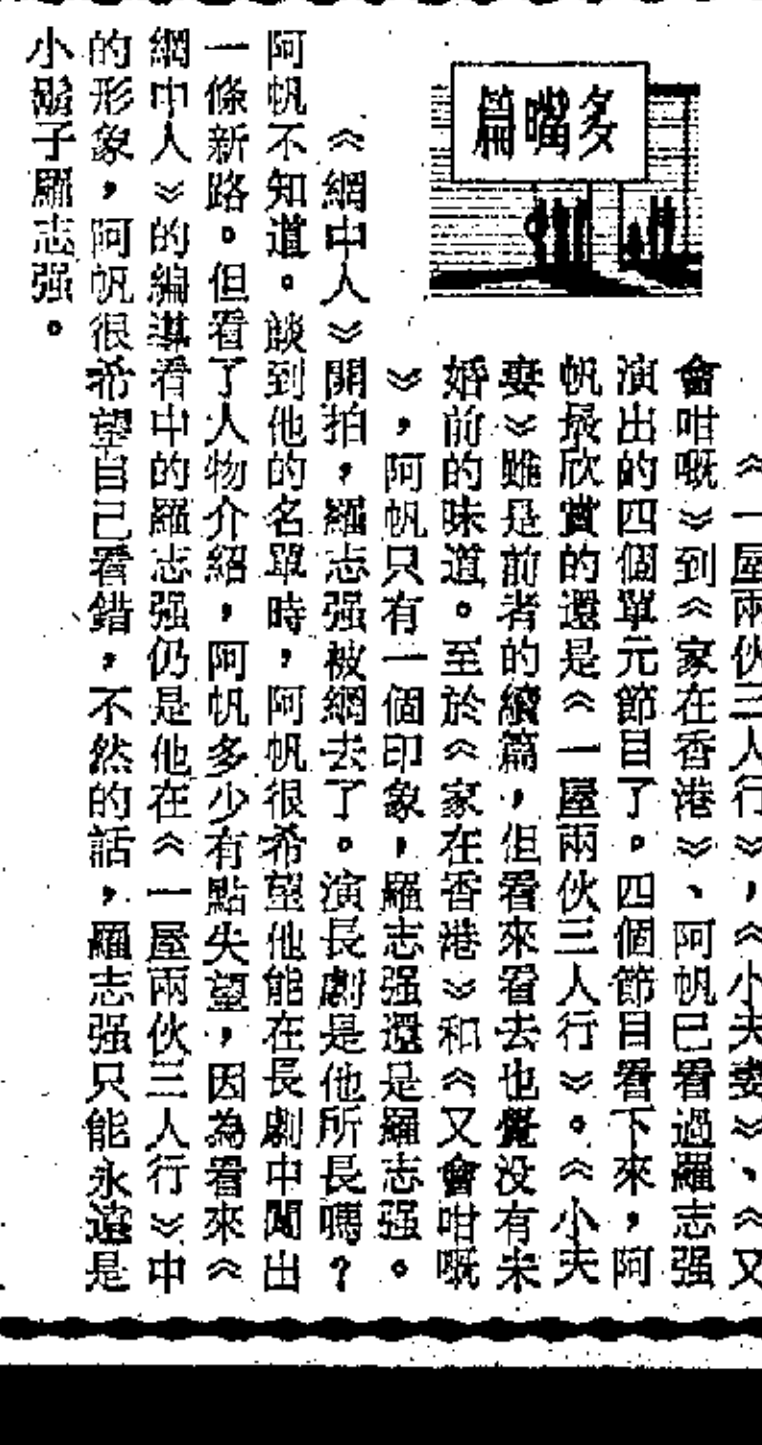 多嘴篇
《一屋兩伙三人行》,《小夫妻》、《又
會咁嘅》到《家在香港》、阿帆已看過羅志强
演出的四個單元節目了。四個節目看下來,阿
帆最欣賞的還是《一屋兩伙三人行》。《小夫
妻》雖是前者的續篇,但看來看去也覺没有未
婚前的味道。至於《家在香港》和《又會咁嘅
》,阿帆只有一個印象,羅志强還是羅志强。
《網中人》開拍,羅志强被網去了。演長劇是他所長嗎?
阿帆不知道。談到他的名單時,阿帆很希望他能在長劇中闖出
一條新路。但看了人物介紹,阿帆多少有點失望,因為看來《
網中人》的編導看中的羅志强仍是他在《一屋兩伙三人行》中
的形象,阿帆很希望自己看錯,不然的話,羅志强只能永遠是
小鬍子羅志强。